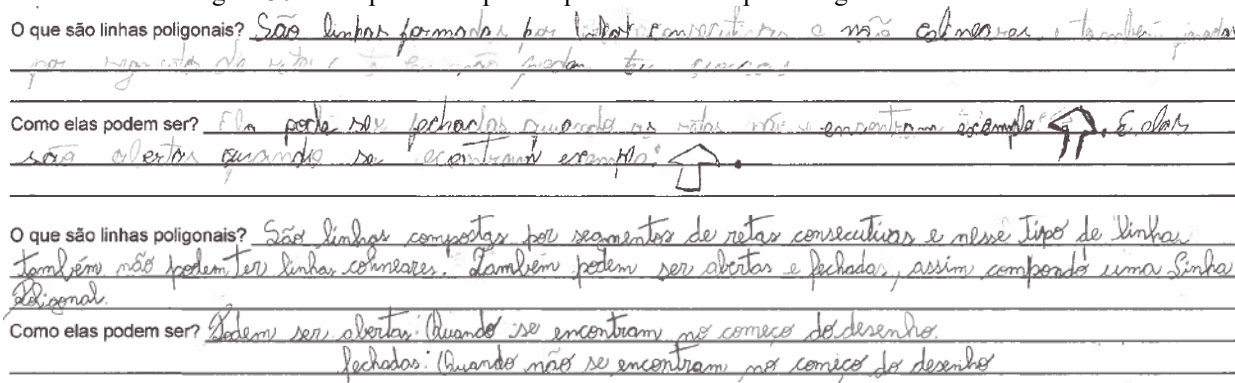 O que são linhas poligonais? São linhas formadas por retas consecutivas e não colineares, também
por segmentos de retas e não podem ter
Como elas podem ser? Ela pode ser fechadas quando as retas não se encontram exemplo: . E elas
são abertas quando se econtram exemplo: .
O que são linhas poligonais? São linhas compostas por segmentos de retas consecutivas e nesse tipo de linhas
também não podem ter linhas colineares. Também podem ser abertas e fechadas, assim compondo uma Linha
Poligonal.
Como elas podem ser? Podem ser abertas: Quando se encontram no começo do desenho.
fechadas: Quando não se encontram no começo do desenho